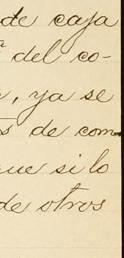 de caja
del co-
, ya se
s de com
que si lo
de otros